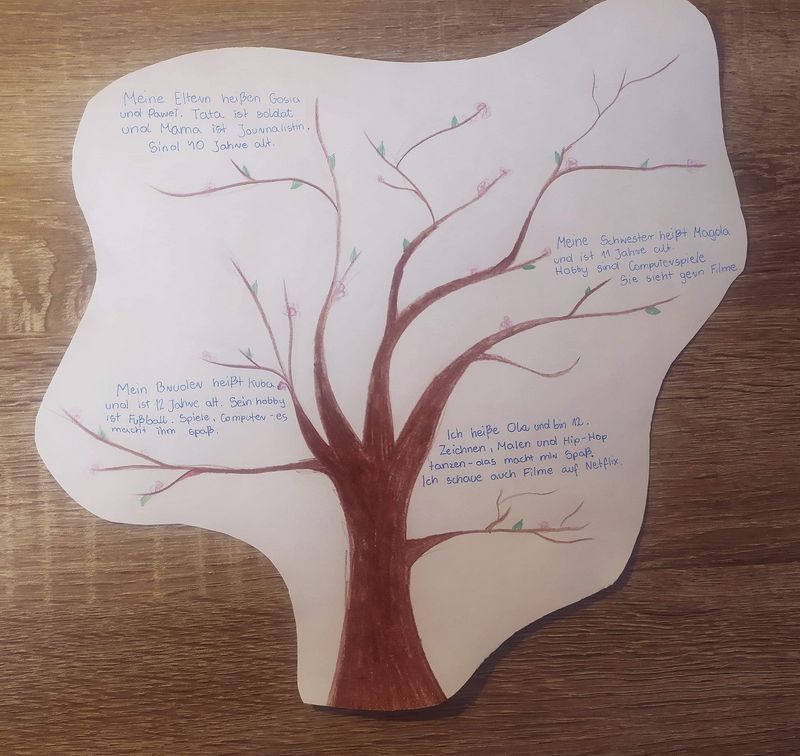 Meine Eltern heißen Gosia
und Paweł. Tata ist soldat
und Mama ist Journalistin.
Sind 40 Jahre alt.
Meine Schwester heißt Magda
und ist 11 Jahre alt.
Hobby sind Computerspiele.
Sie sieht gern Filme.
Mein Bruder heißt Kuba
und ist 12 Jahre alt. Sein hobby
ist Fußball. Spiele, Computer - es
macht ihm spaß.
Ich heiße Ola und bin 12.
Zeichnen, Malen und Hip-Hop
tanzen - das macht mir Spaß.
Ich schaue auch Filme auf Netflix.